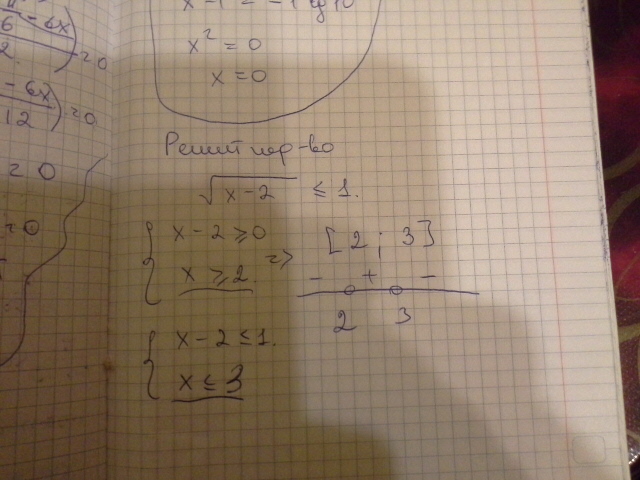 6 - 6x
2.
= 0
- 6x
12
= 0
= 0
= 0
x² = 0
x = 0
Решит нер-во
√x-2 ≤ 1.
x - 2 ≥ 0
x ≥ 2.
=>
[2; 3]
- + -
2 3
x - 2 ≤ 1.
x ≤ 3